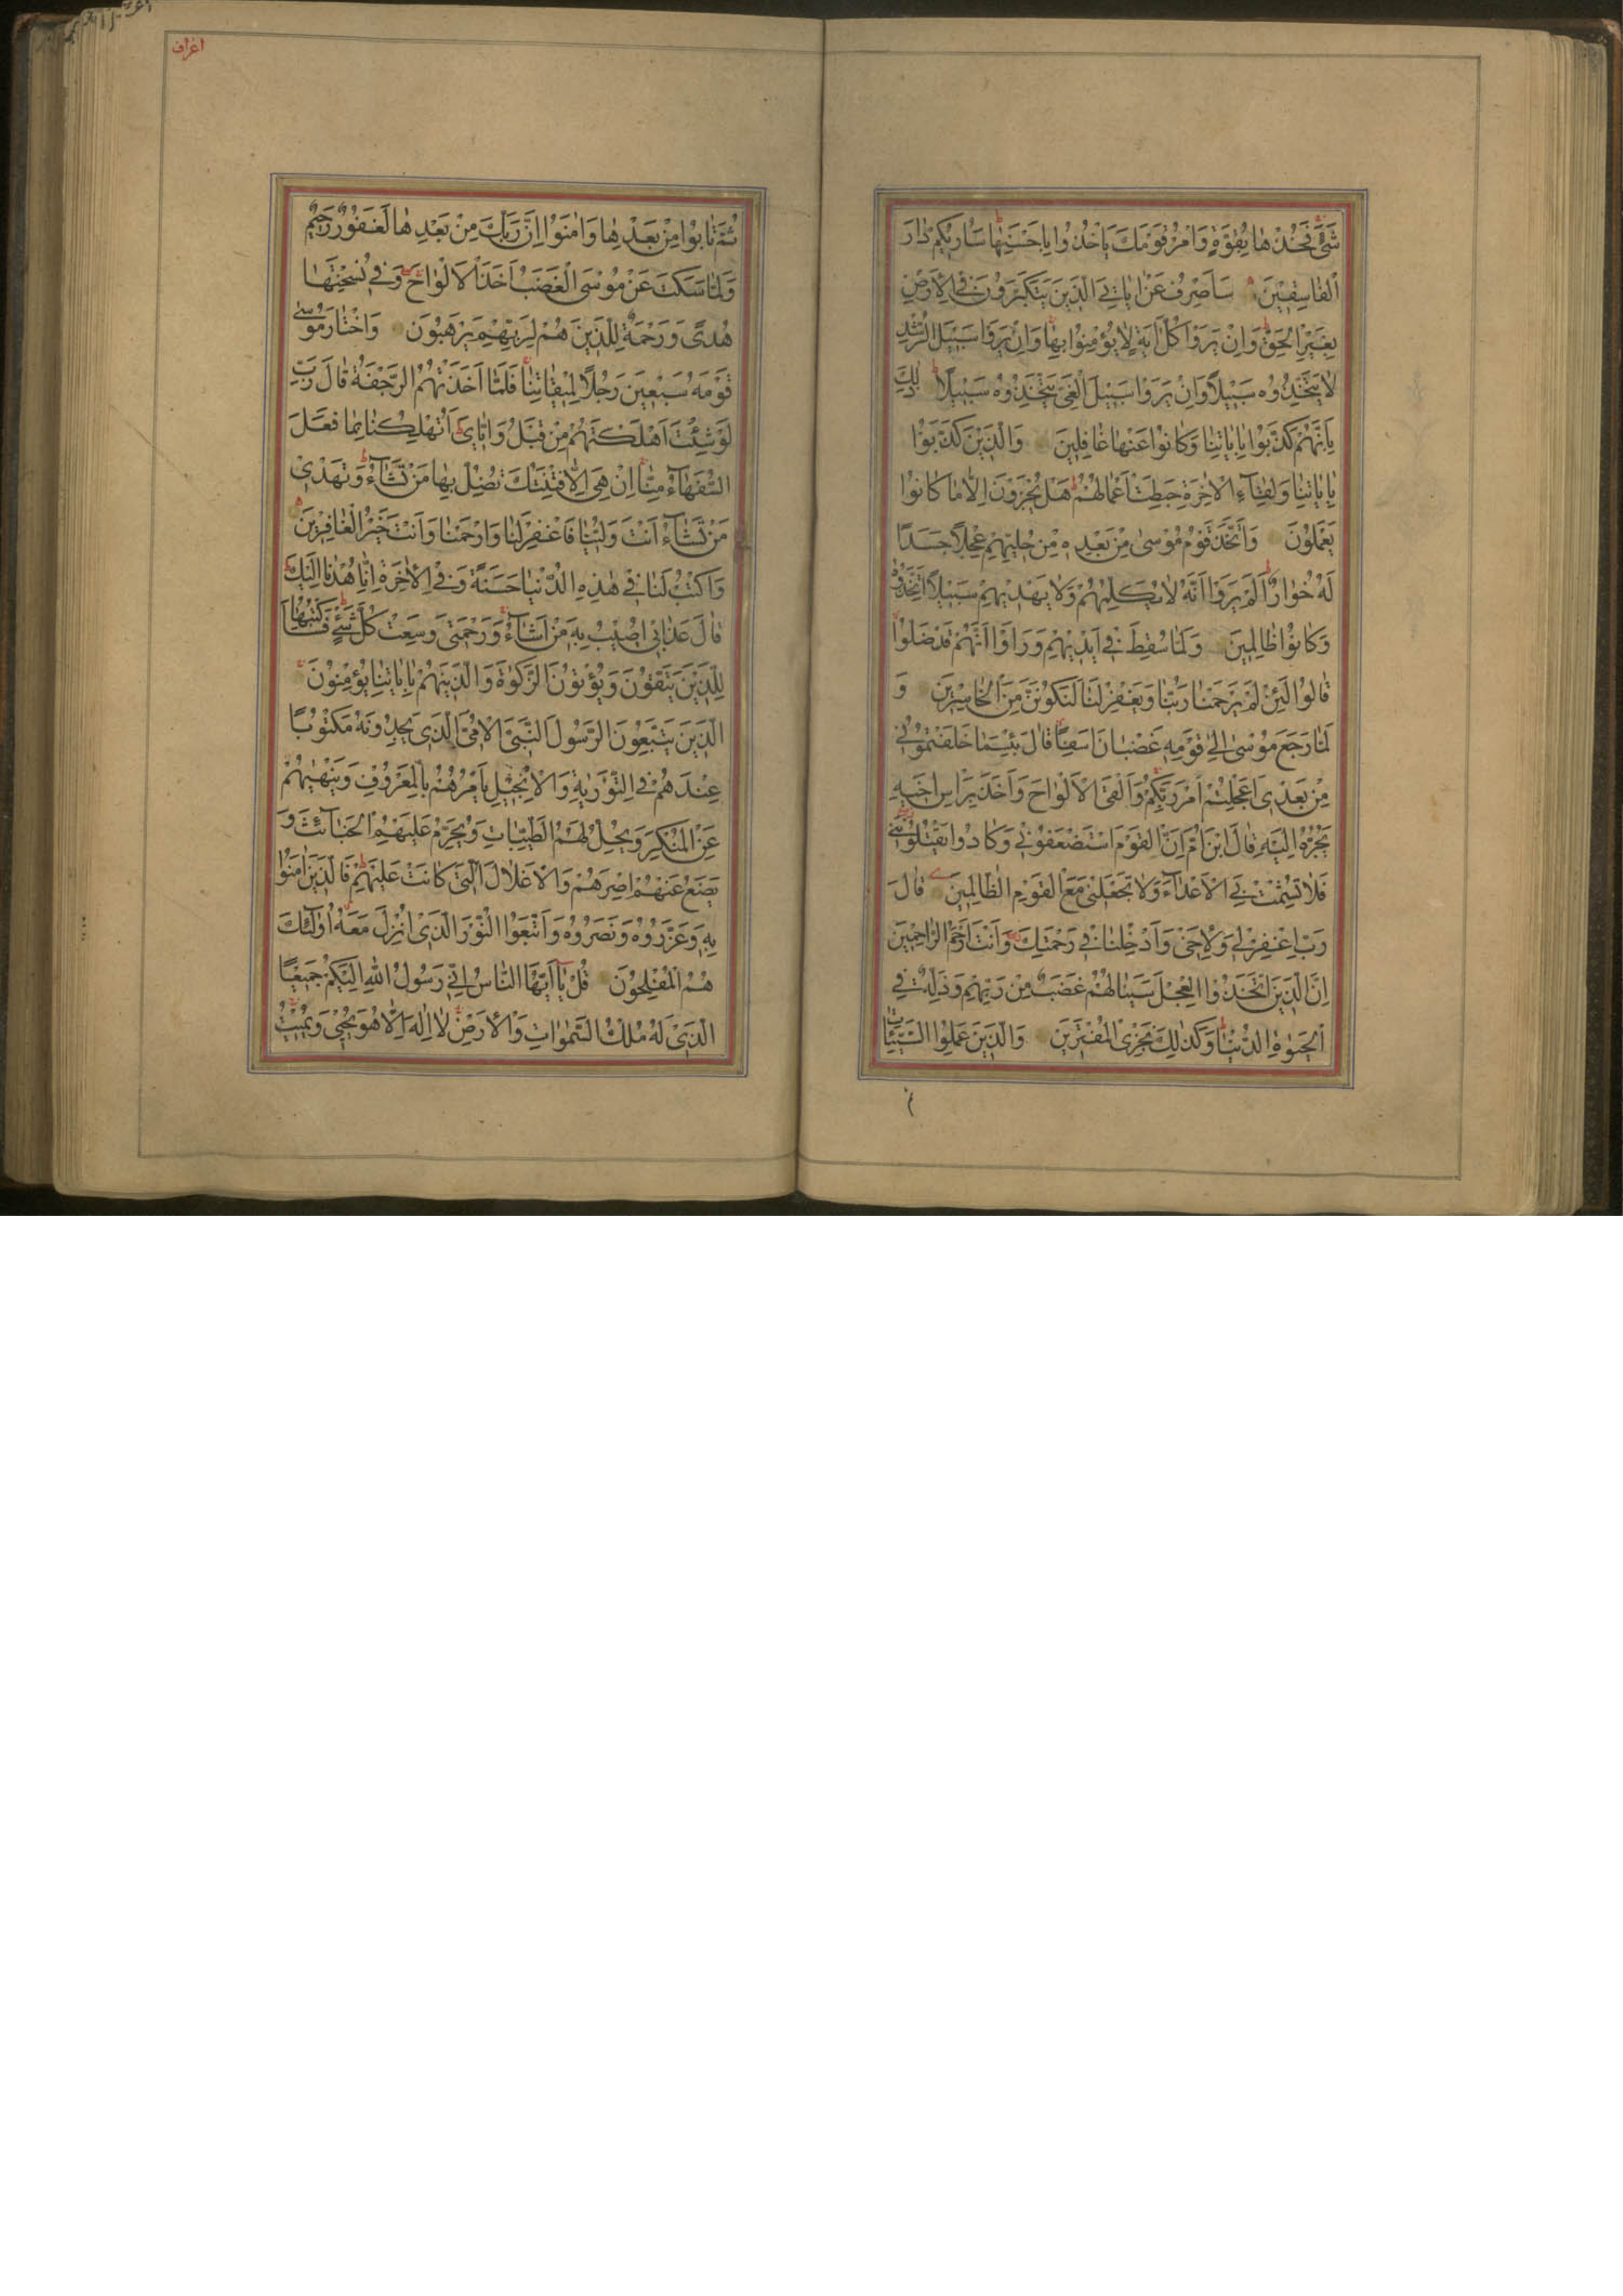 شَیْءٍ فَخُذْهَا بِقُوَّةٍ وَأْمُرْ قَوْمَكَ یَأْخُذُوا بِأَحْسَنِهَا سَأُرِیكُمْ دَارَ
الْفَاسِقِینَ سَأَصْرِفُ عَنْ اٰیَاتِیَ الَّذِینَ یَتَكَبَّرُونَ فِی الْأَرْضِ
بِغَیْرِ الْحَقِّ وَاِنْ یَرَوْا كُلَّ اٰیَةٍ لَا یُؤْمِنُوا بِهَا وَاِنْ یَرَوْا سَبِیلَ الرُّشْدِ
لَا یَتَّخِذُوهُ سَبِیلًا وَاِنْ یَرَوْا سَبِیلَ الْغَیِّ یَتَّخِذُوهُ سَبِیلًا ذٰلِكَ
بِاَنَّهُمْ كَذَّبُوا بِاٰیَاتِنَا وَكَانُوا عَنْهَا غَافِلِینَ وَالَّذِینَ كَذَّبُوا
بِاٰیَاتِنَا وَلِقَآءِ الْاٰخِرَةِ حَبِطَتْ اَعْمَالُهُمْ هَلْ یُجْزَوْنَ اِلَّا مَا كَانُوا
یَعْمَلُونَ وَاتَّخَذَ قَوْمُ مُوسٰی مِنْ بَعْدِهٖ مِنْ حُلِیِّهِمْ عِجْلًا جَسَدًا
لَهُ خُوَارٌ اَلَمْ یَرَوْا اَنَّهُ لَا یُكَلِّمُهُمْ وَلَا یَهْدِیهِمْ سَبِیلًا اِتَّخَذُوهُ
وَكَانُوا ظَالِمِینَ وَلَمَّا سُقِطَ فِی اَیْدِیهِمْ وَرَاَوْا اَنَّهُمْ قَدْ ضَلُّوا
قَالُوا لَئِنْ لَمْ یَرْحَمْنَا رَبُّنَا وَیَغْفِرْ لَنَا لَنَكُونَنَّ مِنَ الْخَاسِرِینَ وَ
لَمَّا رَجَعَ مُوسٰی اِلٰی قَوْمِهٖ غَضْبَانَ اَسِفًا قَالَ بِئْسَمَا خَلَفْتُمُونِی
مِنْ بَعْدِی اَعَجِلْتُمْ اَمْرَ رَبِّكُمْ وَاَلْقَی الْاَلْوَاحَ وَاَخَذَ بِرَاْسِ اَخِیهِ
یَجُرُّهُ اِلَیْهِ قَالَ ابْنَ اُمَّ اِنَّ الْقَوْمَ اسْتَضْعَفُونِی وَكَادُوا یَقْتُلُونَنِی
فَلَا تُشْمِتْ بِیَ الْاَعْدَآءَ وَلَا تَجْعَلْنِی مَعَ الْقَوْمِ الظَّالِمِینَ قَالَ
رَبِّ اغْفِرْ لِی وَلِاَخِی وَاَدْخِلْنَا فِی رَحْمَتِكَ وَاَنْتَ اَرْحَمُ الرَّاحِمِینَ
اِنَّ الَّذِینَ اتَّخَذُوا الْعِجْلَ سَیَنَالُهُمْ غَضَبٌ مِنْ رَبِّهِمْ وَذِلَّةٌ فِی
الْحَیٰوةِ الدُّنْیَا وَكَذٰلِكَ نَجْزِی الْمُفْتَرِینَ وَالَّذِینَ عَمِلُوا السَّیِّئَاتِ
اعراف
ثُمَّ تَابُوا مِنْ بَعْدِهَا وَاٰمَنُوا اِنَّ رَبَّكَ مِنْ بَعْدِهَا لَغَفُورٌ رَحِیمٌ
وَلَمَّا سَكَتَ عَنْ مُوسَی الْغَضَبُ اَخَذَ الْاَلْوَاحَ وَفِی نُسْخَتِهَا
هُدًی وَرَحْمَةٌ لِلَّذِینَ هُمْ لِرَبِّهِمْ یَرْهَبُونَ وَاخْتَارَ مُوسٰی
قَوْمَهُ سَبْعِینَ رَجُلًا لِمِیقَاتِنَا فَلَمَّا اَخَذَتْهُمُ الرَّجْفَةُ قَالَ رَبِّ
لَوْ شِئْتَ اَهْلَكْتَهُمْ مِنْ قَبْلُ وَاِیَّایَ اَتُهْلِكُنَا بِمَا فَعَلَ
السُّفَهَآءُ مِنَّا اِنْ هِیَ اِلَّا فِتْنَتُكَ تُضِلُّ بِهَا مَنْ تَشَآءُ وَتَهْدِی
مَنْ تَشَآءُ اَنْتَ وَلِیُّنَا فَاغْفِرْ لَنَا وَارْحَمْنَا وَاَنْتَ خَیْرُ الْغَافِرِینَ
وَاكْتُبْ لَنَا فِی هٰذِهِ الدُّنْیَا حَسَنَةً وَفِی الْاٰخِرَةِ اِنَّا هُدْنَا اِلَیْكَ
قَالَ عَذَابِی اُصِیبُ بِهٖ مَنْ اَشَآءُ وَرَحْمَتِی وَسِعَتْ كُلَّ شَیْءٍ فَسَاَكْتُبُهَا
لِلَّذِینَ یَتَّقُونَ وَیُؤْتُونَ الزَّكٰوةَ وَالَّذِینَ هُمْ بِاٰیَاتِنَا یُؤْمِنُونَ
الَّذِینَ یَتَّبِعُونَ الرَّسُولَ النَّبِیَّ الْاُمِّیَّ الَّذِی یَجِدُونَهُ مَكْتُوبًا
عِنْدَهُمْ فِی التَّوْرٰیةِ وَالْاِنْجِیلِ یَاْمُرُهُمْ بِالْمَعْرُوفِ وَیَنْهٰیهُمْ
عَنِ الْمُنْكَرِ وَیُحِلُّ لَهُمُ الطَّیِّبَاتِ وَیُحَرِّمُ عَلَیْهِمُ الْخَبَآئِثَ وَ
یَضَعُ عَنْهُمْ اِصْرَهُمْ وَالْاَغْلَالَ الَّتِی كَانَتْ عَلَیْهِمْ فَالَّذِینَ اٰمَنُوا
بِهٖ وَعَزَّرُوهُ وَنَصَرُوهُ وَاتَّبَعُوا النُّورَ الَّذِی اُنْزِلَ مَعَهُ اُولٰٓئِكَ
هُمُ الْمُفْلِحُونَ قُلْ یَآ اَیُّهَا النَّاسُ اِنِّی رَسُولُ اللّٰهِ اِلَیْكُمْ جَمِیعًا
الَّذِی لَهُ مُلْكُ السَّمٰوَاتِ وَالْاَرْضِ لَا اِلٰهَ اِلَّا هُوَ یُحْیِی وَیُمِیتُ